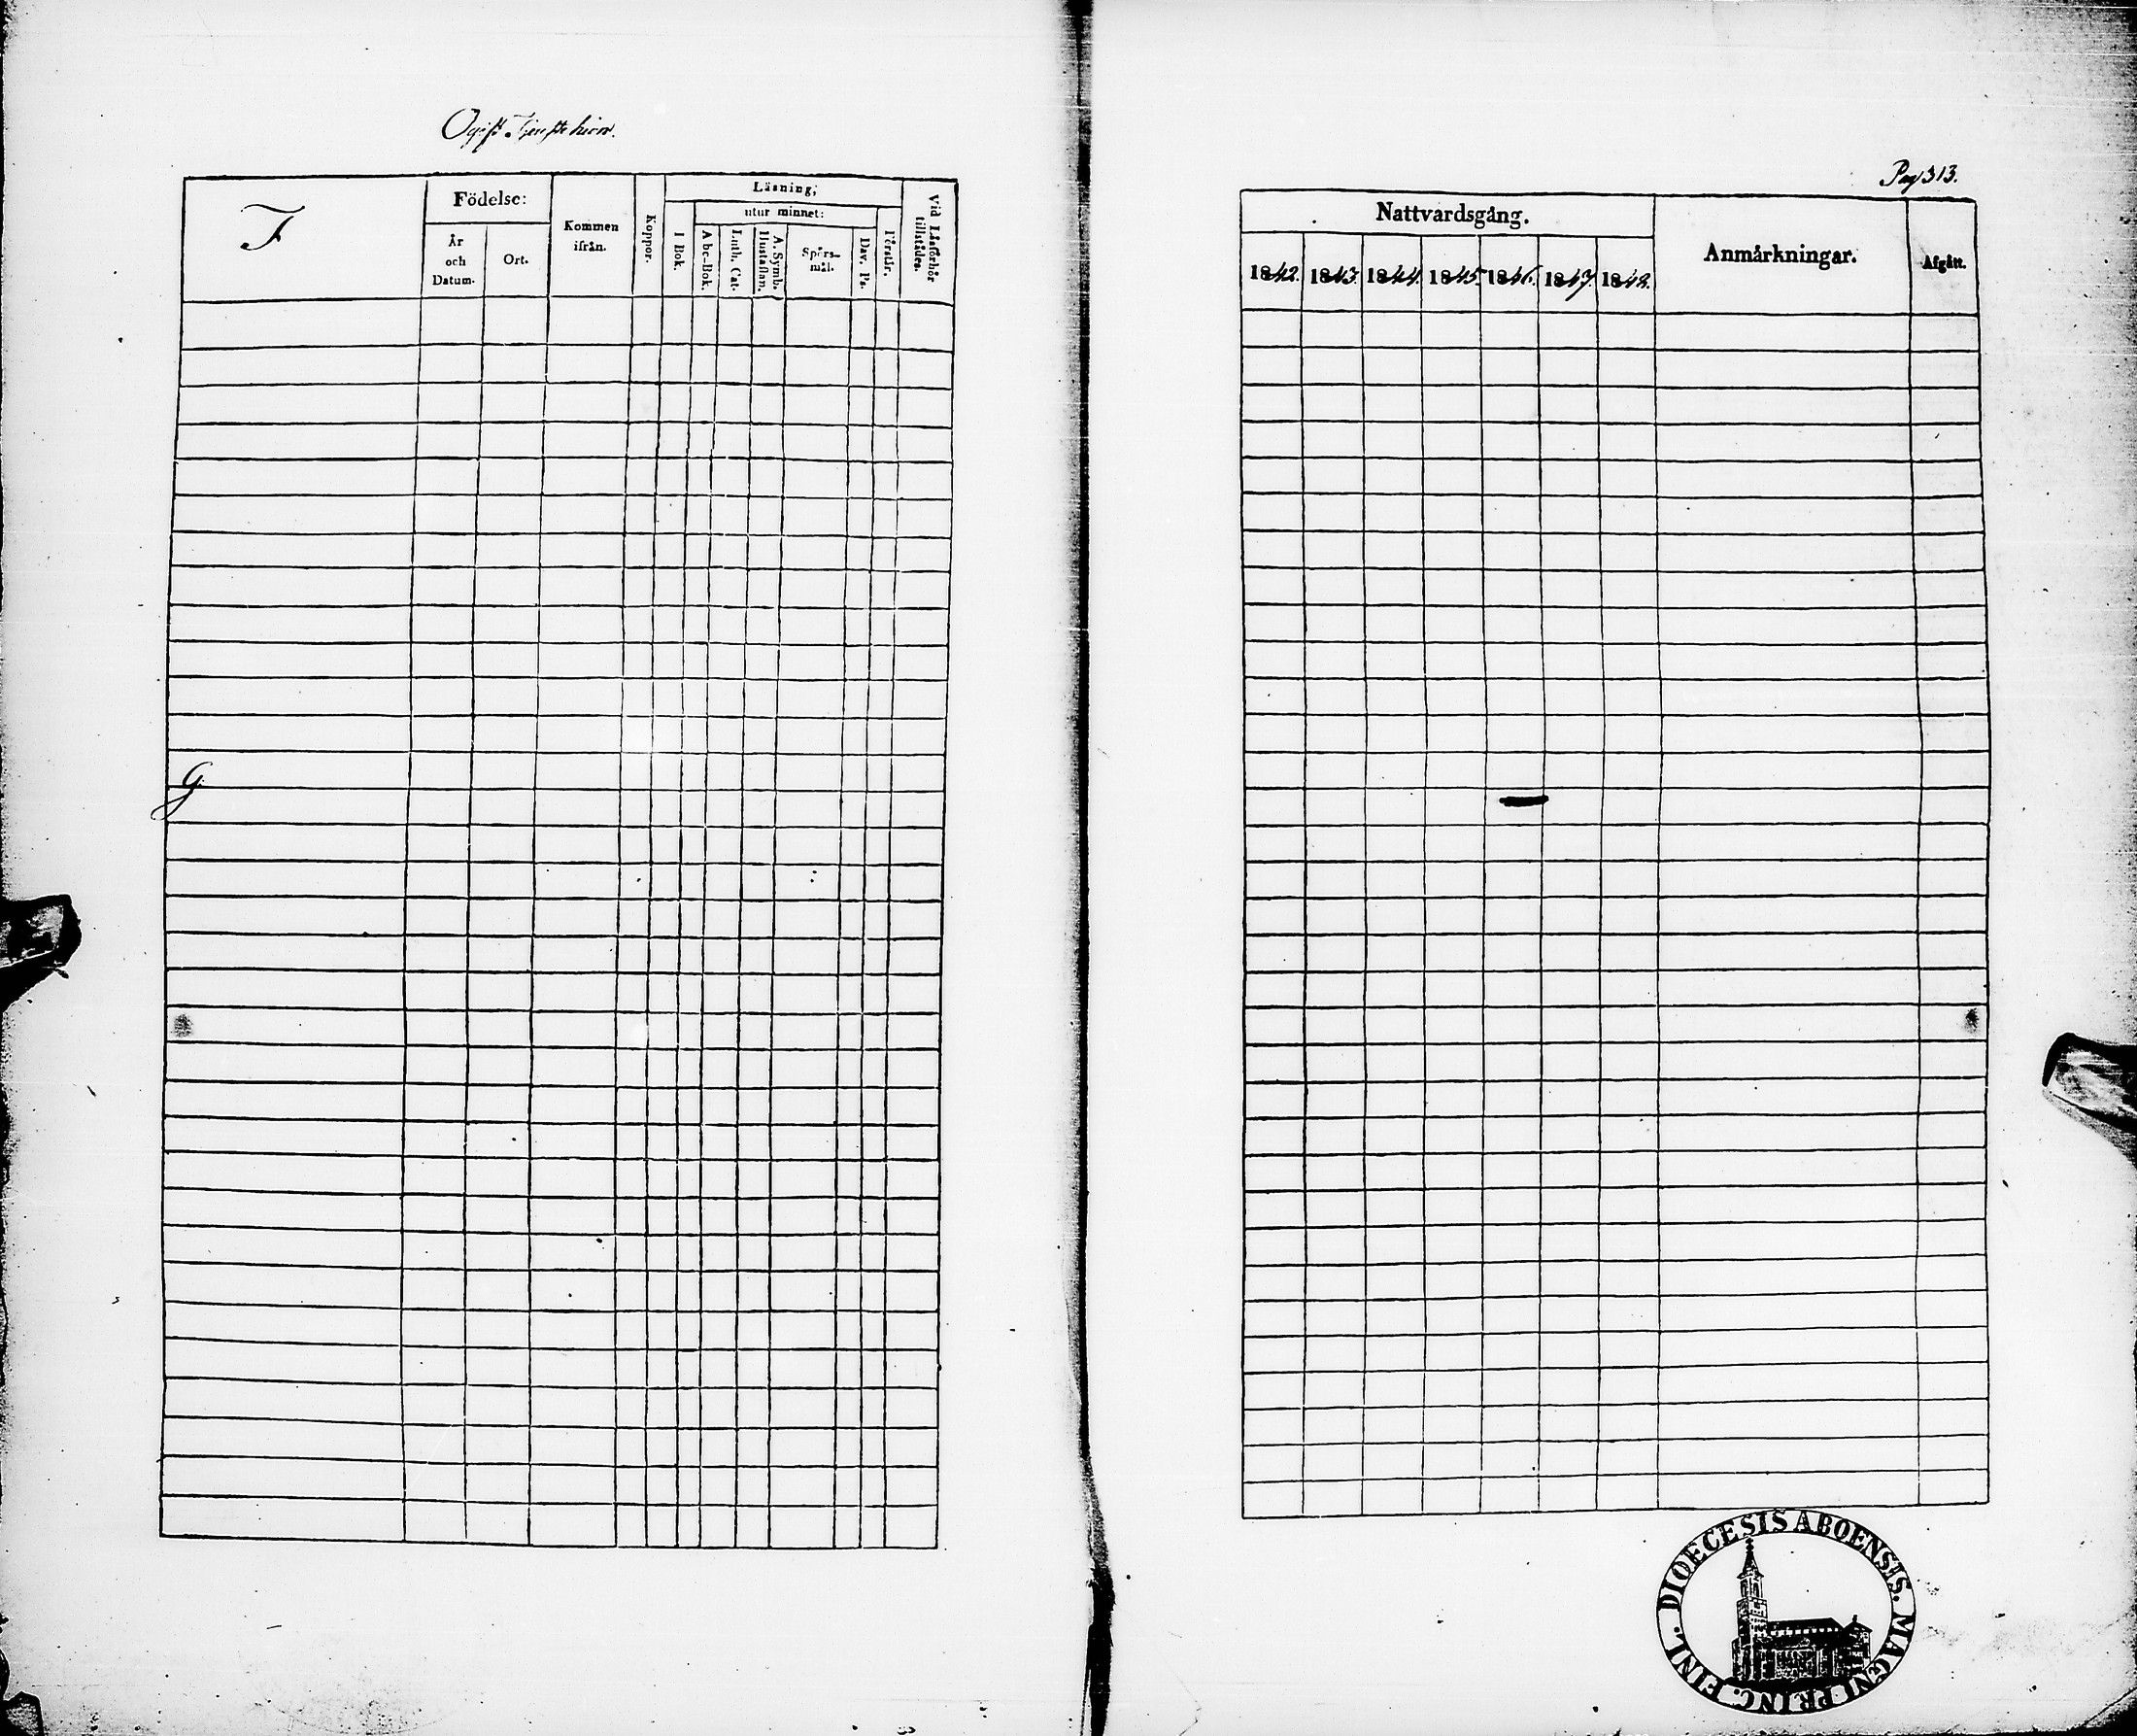 Ogift Tjenstehion.
Pag 313.
F
Födelse:
År
och
Datum.
Ort.
Kommen
ifrån.
Koppor.
Läsning,
I Bok.
utur minnet:
Abc-Bok.
Luth. Cat.
A. Symb.
Hustaflan.
Spörs-
mål.
Dav. Ps.
Förstår.
Vid Läsförhör
tillstädes.
Nattvardsgång.
1842. 1843. 1844. 1845. 1846. 1847. 1848.
Anmärkningar.
Afgått.
G.
DIOECESIS ABOENSIS. MAGNI PRINC. FINL.